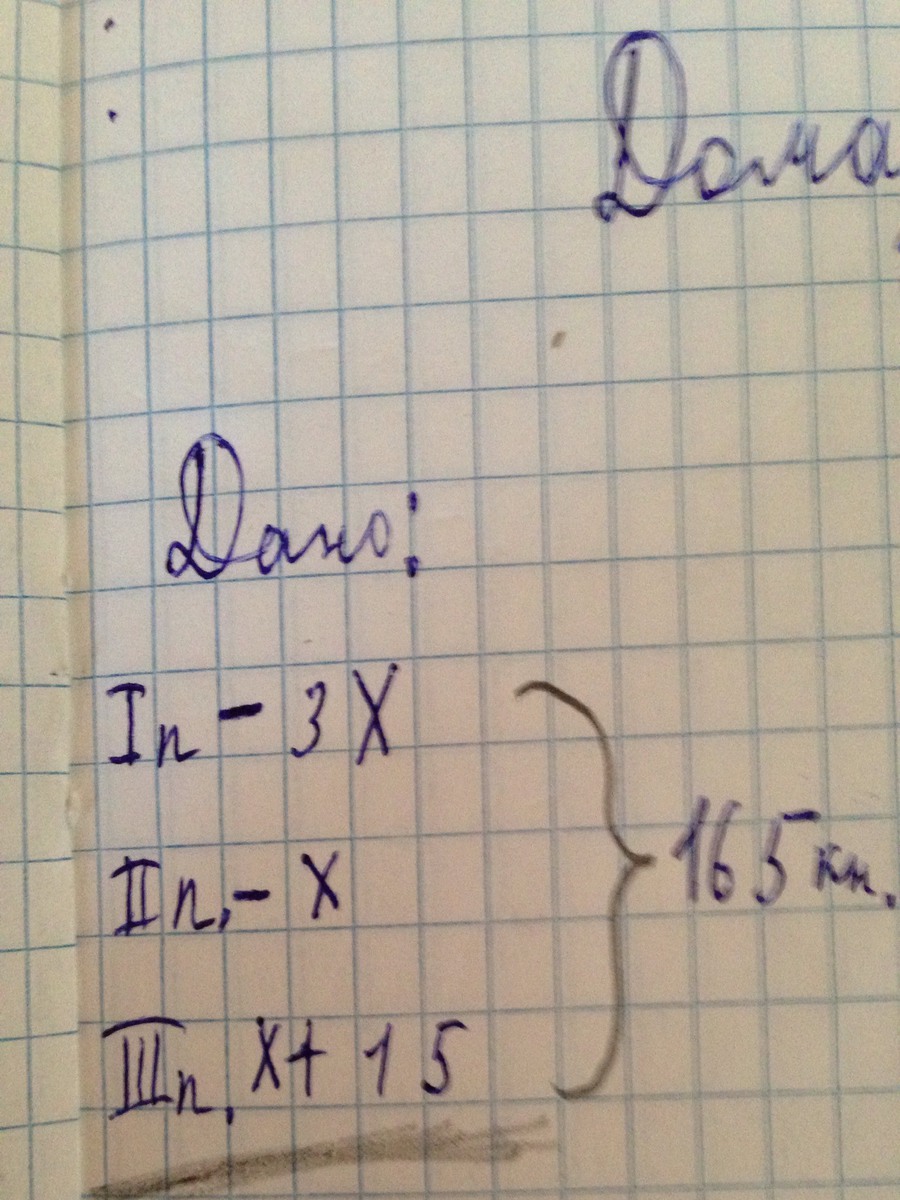 Дома
Дано:
Iп - 3X
IIп. - X
165 кн.
IIIп. X + 15